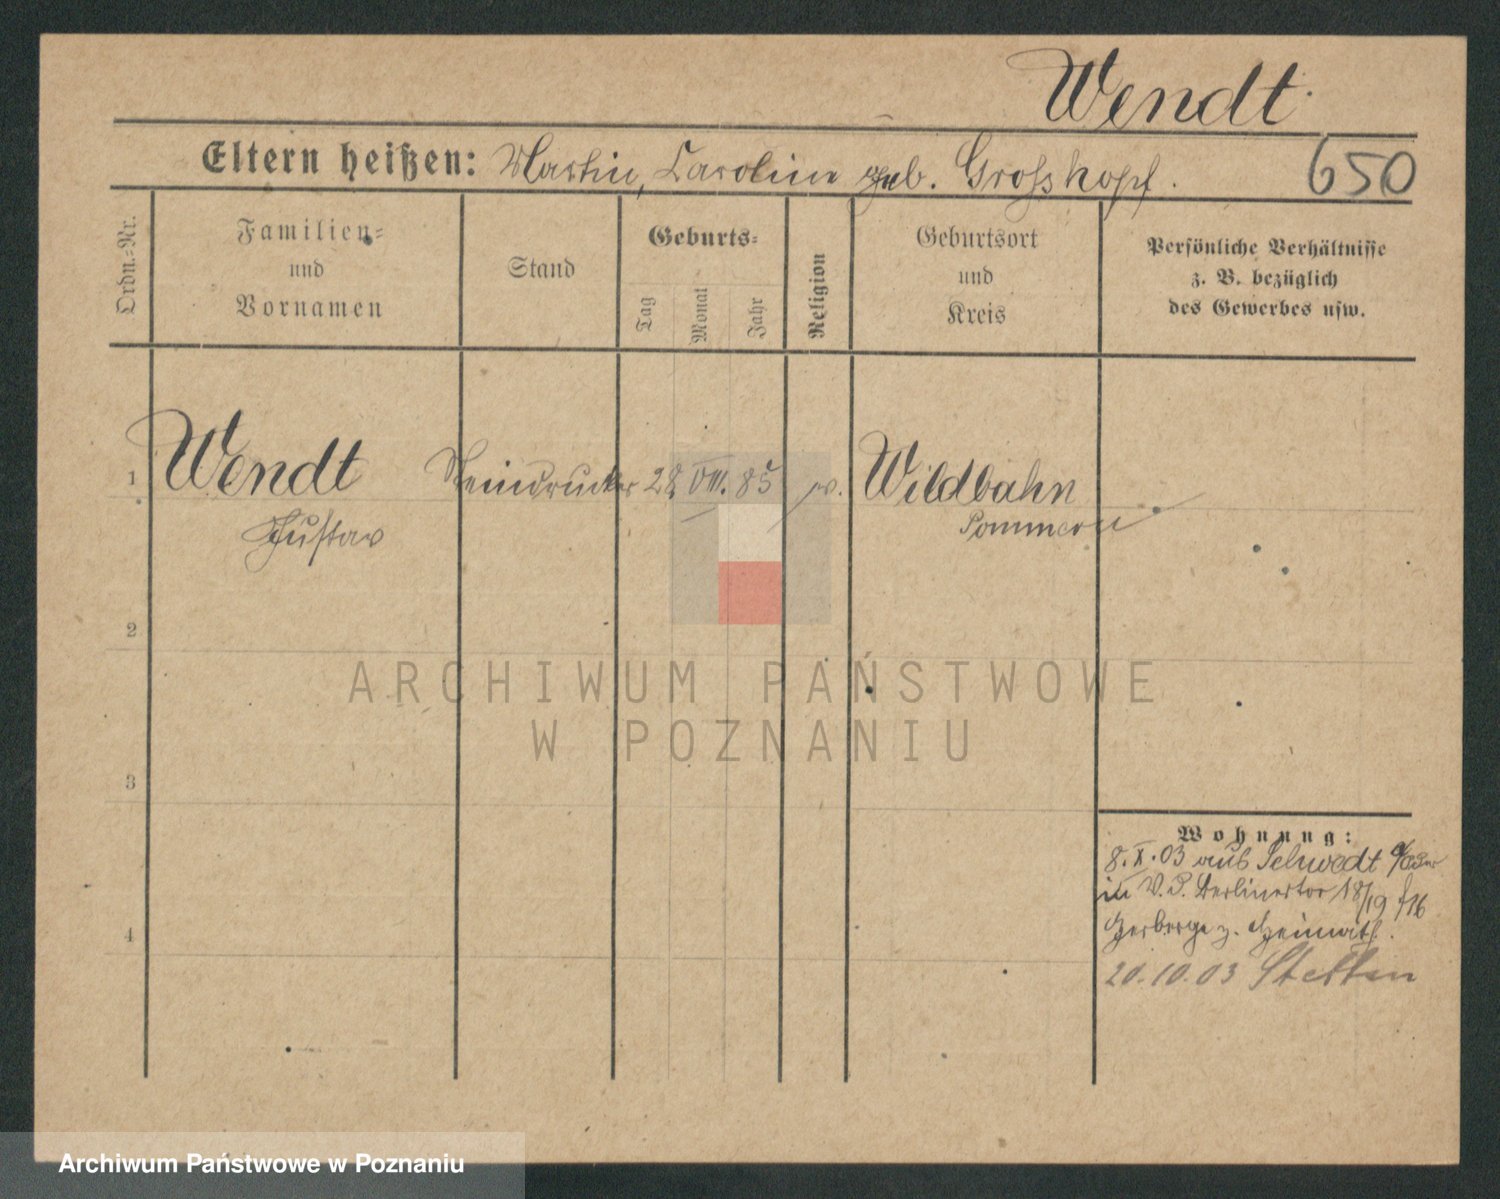 Wendt.
Eltern heißen: Martin, Caroline geb. Grosskopf.
650
Ordn.-Nr.
Familien-
und
Vornamen
Stand
Geburts-
Tag
Monat
Jahr
Religion
Geburtsort
und
Kreis
Persönliche Verhältnisse
z. B. bezüglich
des Gewerbes usw.
1
Wendt
Steindrucker
28.
VIII.
85
ev.
Wildbahn
Gustav
Pommern
2
3
4
Wohnung:
8.X.03 aus Schwedt a/Oder
in V. P. Berlinertor 18/19
Herberge z. Heimath.
20.10.03 Stettin
ARCHIWUM PAŃSTWOWE
W POZNANIU
Archiwum Państwowe w Poznaniu